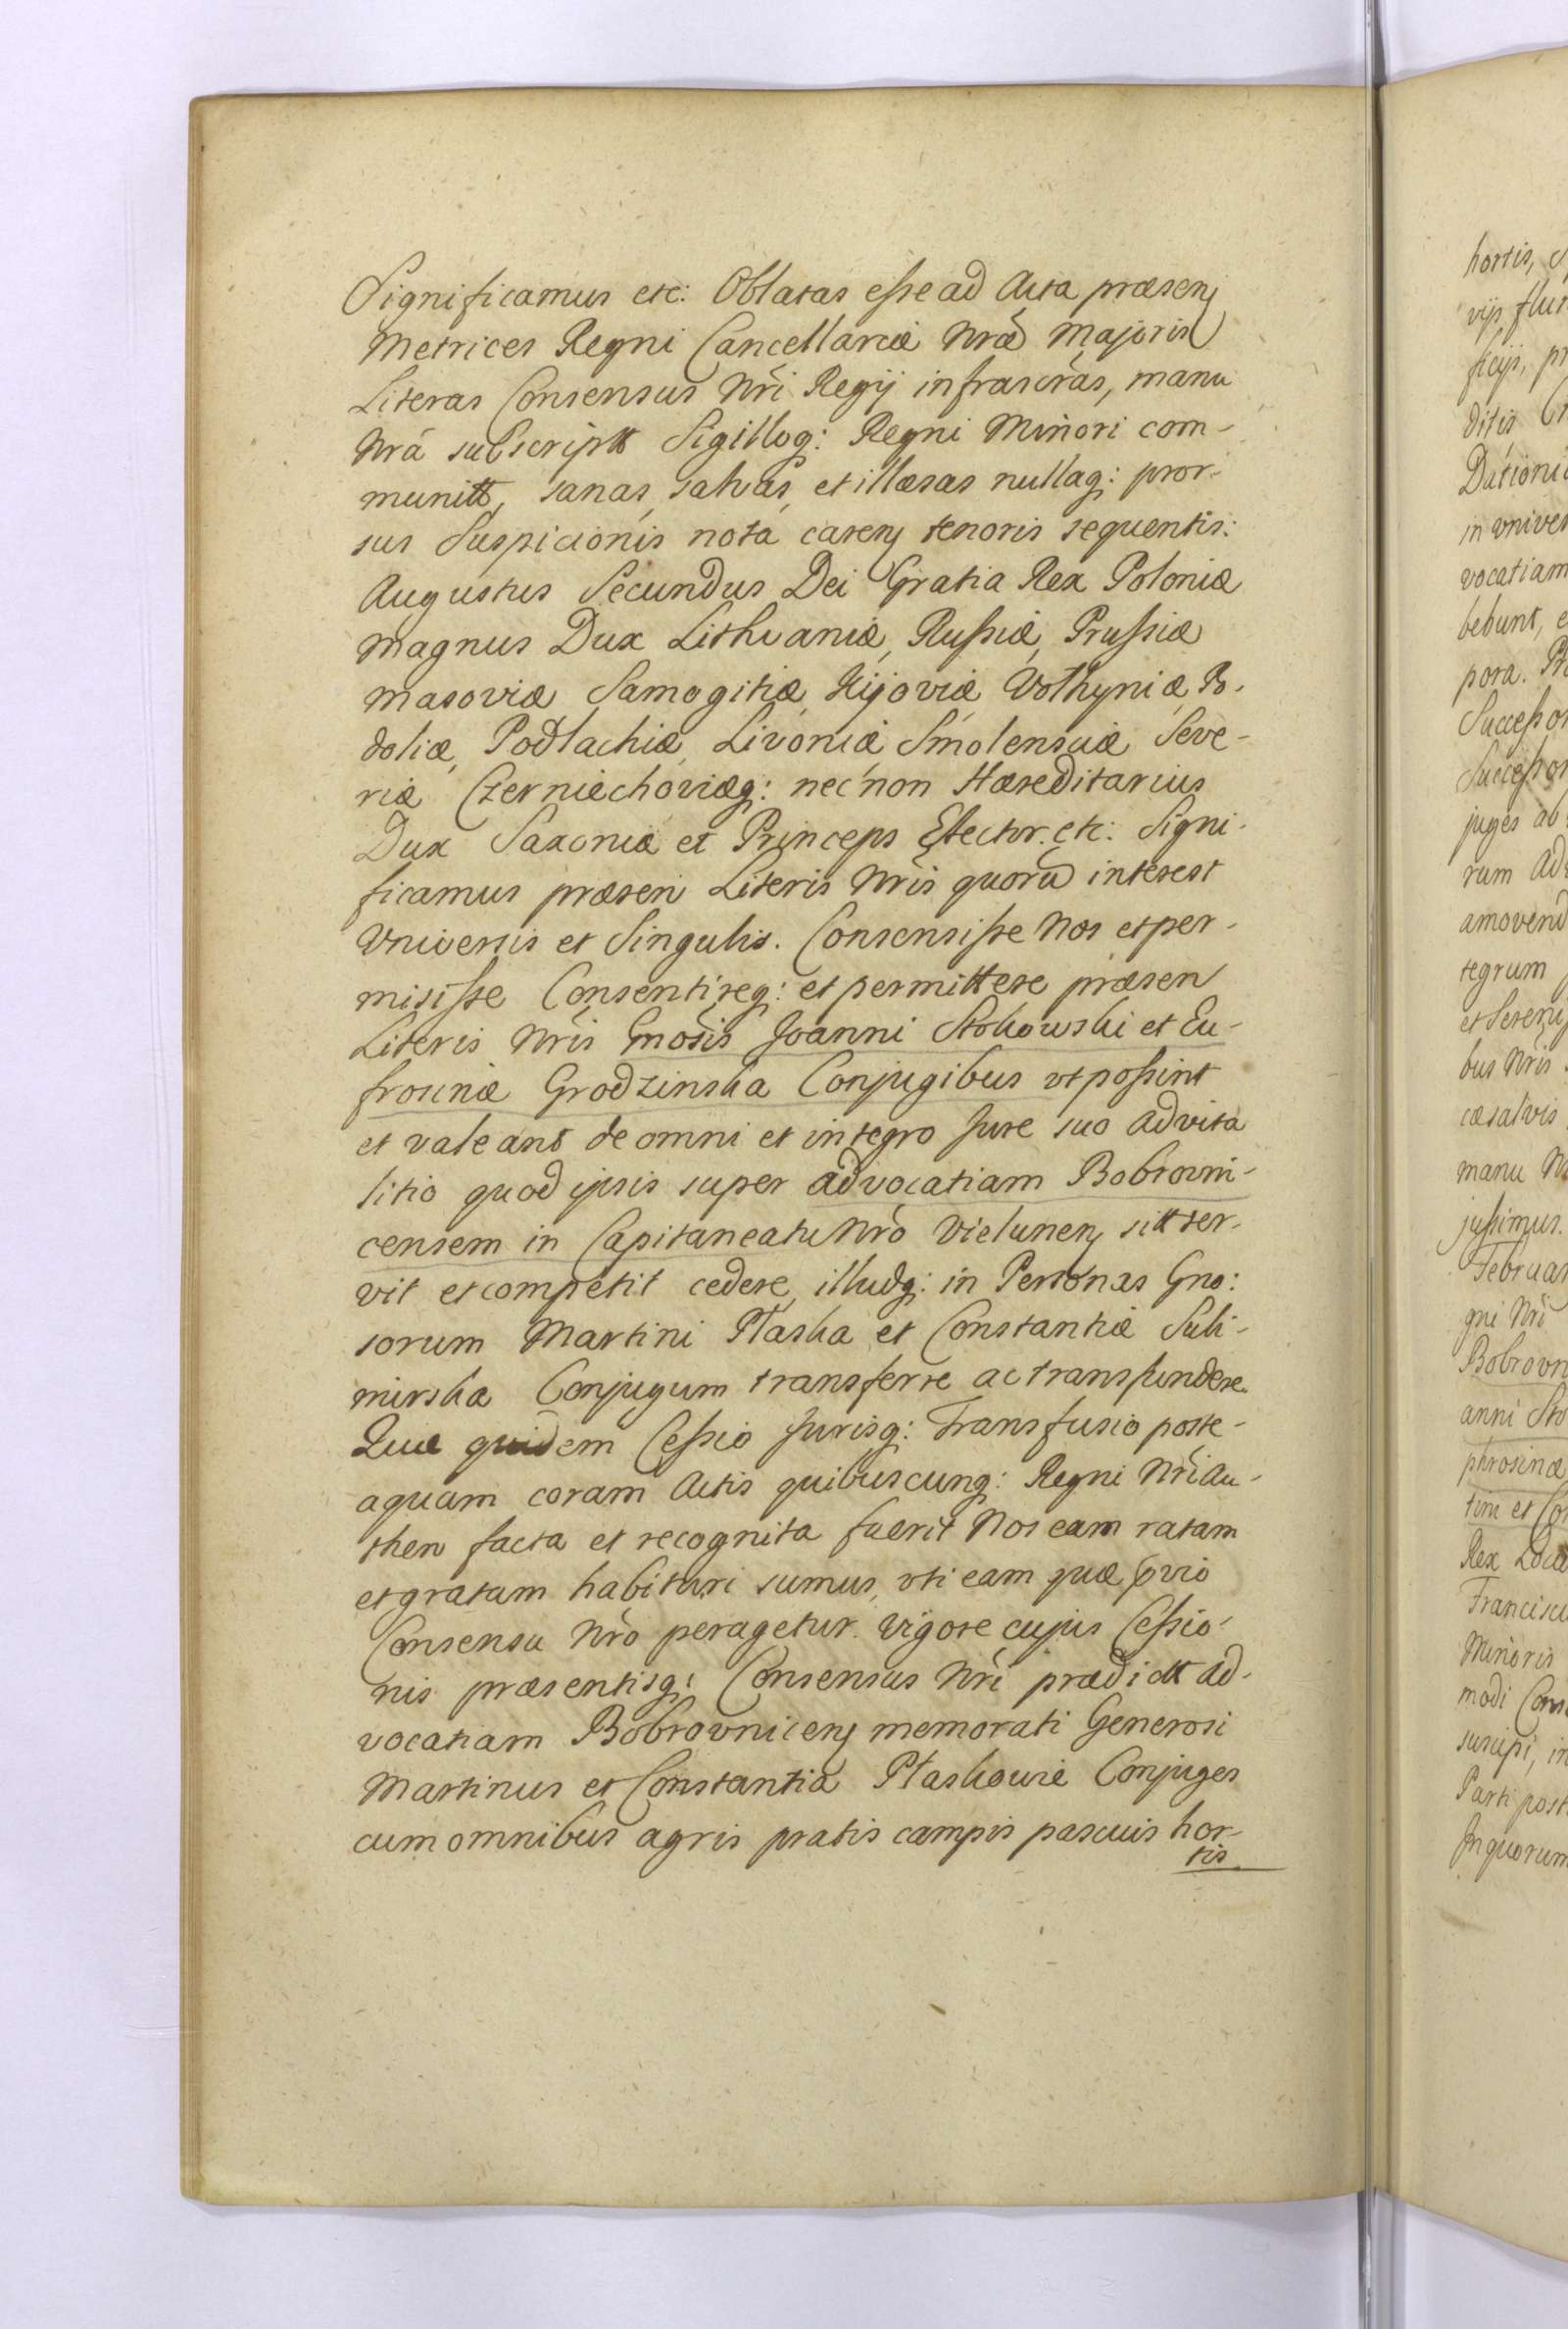 Significamus etc: Oblatas eſse ad Acta præsenȷ
Metrices Regni Cancellariæ Nræ Majoris
Literas Consensus Nr̃i Regij infrascrãs, manu
Nrã subscriptt Sigilloq: Regni Minori com-
munitt, sanas, salvas, et illæsas nullaq: pror-
sus Suspicionis notâ carenȷ tenoris sequentis:
Augustus Secundus Dei Gratia Rex Poloniæ
Magnus Dux Lithvaniæ, Ruſsiæ, Pruſsiæ
Masoviæ Samogitiæ, Kijoviæ Volhyniæ, Po-
doliæ, Podlachiæ, Livoniæ Smolensciæ Seve-
riæ Czerniechoviæq: nec non Hæreditarius
Dux Saxoniæ et Princeps Elector. etc: Signi-
ficamus præsen Literis Nr̃is quorũ interest
Vniversis et Singulis. Consensiſse Nos et per-
misiſse Consentireq: et permittere præsen
Literis Nr̃is Gnosis Joanni Stokowski et Eu-
frosinæ Grodzinska Conjugibus vt poſsint
et valeant de omni et integro Jure suo advita
litio quod ipsis super advocatiam Bobrovni-
censem in Capitaneatu Nr̃o Vielunenȷ sitt ser-
vit et competit cedere, illudq: in Personas Gno:
sorum Martini Ptaska et Constantiæ Suli-
mirska Conjugum transferre ac transfundere.
Quæ quidem Ceſsio Jurisq: Transfusio poste-
aquam coram Actis quibuscunq: Regni Nr̃i Au-
then facta et recognita fuerit Nos eam ratam
et gratam habituri sumus, vti eam quæ pvio
Consensu Nr̃o peragetur. Vigore cujus Ceſsio-
nis præsentisq: Consensus Nr̃i prædictt Ad-
vocatiam Bobrovnicenȷ memorati Generosi
Martinus et Constantia Ptaskowie Conjuges
cum omnibus agris pratis campis pascuis hor-
tis
hortis,
vijs flu
ficijs, pr
ditis
Dationi
in vniver
vocatiam
bebunt, e
pora.
Succeſsor
Succeſsor
juges ab
rum Ad
amovend
tegrum
et Serenȷ
bus Nr̃is
cæsalvis
manu
juſsimus.
Februar
gni Nr̃i
Bobrovn
anni Sto
phrosinæ
tini et Co
Rex
Francisc
Minoris
modi Cons
suscipi, in
Parti post
In quorum